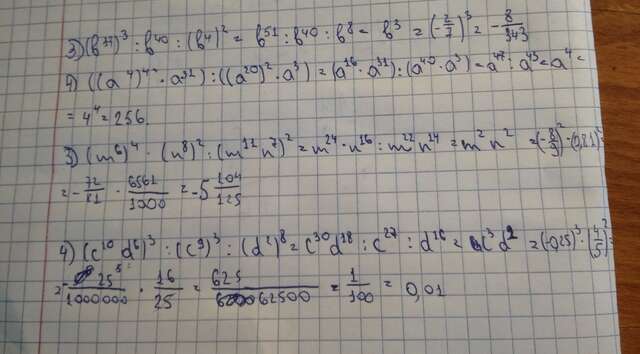 3) (b¹⁷)³ : b⁴⁰ : (b⁴)² = b⁵¹ : b⁴⁰ : b⁸ = b³ = (-2/7)³ = -8/343
4) ((a⁴)⁴ · a³¹) : ((a²⁰)² · a³) = (a¹⁶ · a³¹) : (a⁴⁰ · a³) = a⁴⁷ : a⁴³ = a⁴ =
= 4⁴ = 256
3) (m⁶)⁴ · (n⁸)² : (m¹² n⁷)² = m²⁴ · n¹⁶ : m²² n¹⁴ = m² n² = (-8/9)² · (0,81)²
= -72/81 · 6561/1000 = -5 104/125
4) (c¹⁰ d⁶)³ : (c⁹)³ : (d²)⁸ = c³⁰ d¹⁸ : c²⁷ : d¹⁶ = c³ d² = (-0,25)³ · (4/5)²
= - 25³/1000000 · 16/25 = 625/62500 = 1/100 = 0,01